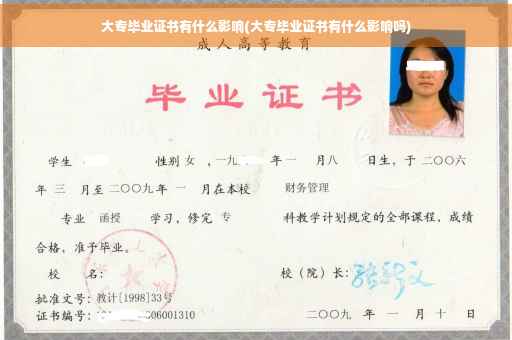 大专毕业证书有什么影响(大专毕业证书有什么影响吗)
成人高等教育
毕业证书
学生 性别 女 ，一九 年 一 月 八 日生，于 二〇〇六
年 三 月至 二〇〇九 年 一 月在本校 财务管理
专业 函授 学习，修完 专 科教学计划规定的全部课程，成绩
合格，准予毕业。
校 名： 校（院）长：
批准文号：教计[1998]33号
证书编号： 06001310 二〇〇九 年 一 月 十 日